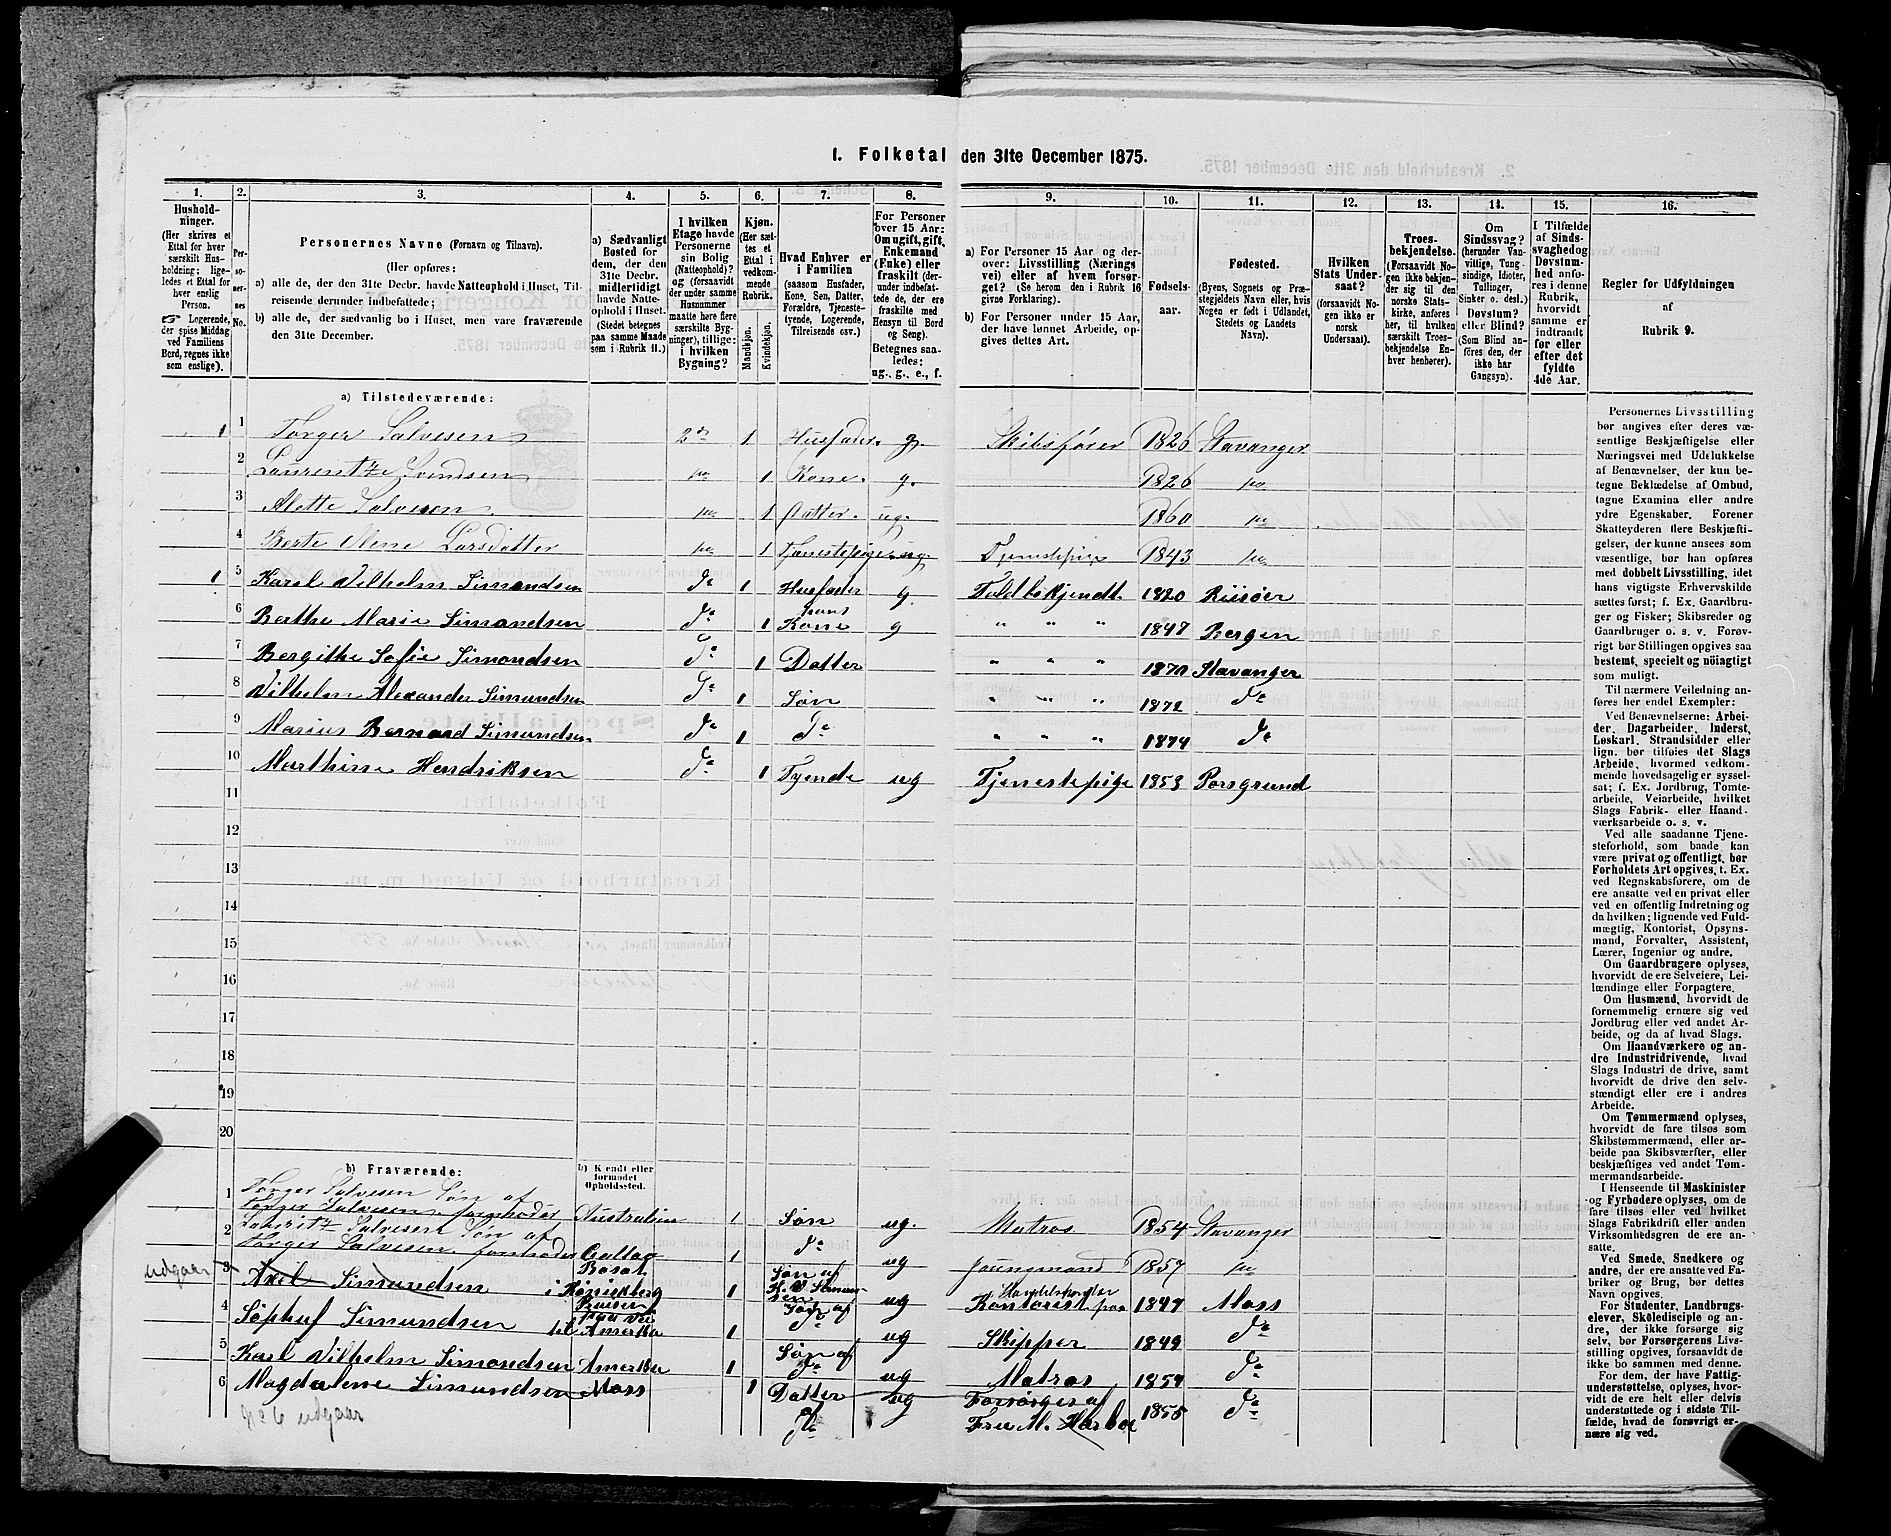 I. Folketal den 31te December 1875.
1. 2. 3. 4. 5. 6. 7. 8. 9. 10. 11. 12. 13. 14. 15. 16.
Hushold-
ninger.
(Her skrives et
Ettal for hver
særskilt Hus-
holdning; lige-
ledes et Ettal for
hver enslig
Person.
☞ Logerende,
der spise Middag
ved Familiens
Bord, regnes ikke
som enslige).
Per-
so-
ner-
nes
No.
Personernes Navne (Fornavn og Tilnavn).
(Her opføres:
a) alle de, der den 31te Decbr. havde Natteophold i Huset, Til-
reisende derunder indbefattede;
b) alle de, der sædvanlig bo i Huset, men vare fraværende
den 31te December.
a) Sædvanligt
Bosted for
dem, der den
31te Decbr.
midlertidigt
havde Natte-
ophold i Huset.
(Stedet betegnes
paa samme Maade
som i Rubrik 11.)
I hvilken
Etage havde
Personerne
sin Bolig
(Natteophold)?
og (forsaavidt
der under samme
Husnummer
maatte høre flere
særskilte Byg-
ninger), tillige:
i hvilken
Bygning?
Kjøn.
(Her sæt-
tes et
Ettal i
vedkom-
mende
Rubrik.
Mandkjøn.
Kvindekjøn.
Hvad Enhver er
i Familien
(saasom Husfader,
Kone, Søn, Datter,
Forældre, Tjeneste-
tyende, Logerende,
Tilreisende osv.)
For Personer
over 15 Aar:
Om ugift, gift,
Enkemand
(Enke) eller
fraskilt (der-
under indbefat-
tede de, der ere
fraskilte med
Hensyn til Bord
og Seng).
Betegnes saa-
ledes:
ug., g., e., f.
a) For Personer 15 Aar og der-
over: Livsstilling (Nærings
vei) eller af hvem forsør-
get? (Se herom den i Rubrik 16
givne Forklaring).
b) For Personer under 15 Aar,
der have lønnet Arbeide, op-
gives dettes Art.
Fødsels-
aar.
Fødested.
(Byens, Sognets og Præ-
stegjeldets Navn eller, hvis
Nogen er født i Udlandet,
Stedets og Landets
Navn).
Hvilken
Stats Under-
saat?
(forsaavidt No-
gen ikke er
norsk
Undersaat).
Troes-
bekjendelse.
(Forsaavidt No-
gen ikke bekjen-
der sig til den
norske Stats-
kirke, anføres
her, til hvilken
særskilt Troes-
bekjendelse En-
hver henhører).
Om
Sindssvag?
(herunder Van-
vittige, Tung-
sindige, Idioter,
Tullinger,
Sinker o. desl.)
Døvstum?
eller Blind?
(Som Blind an-
føres den, der
ikke har
Gangsyn).
I Tilfælde
af Sinds-
svaghed og
Døvstum-
hed anfø-
res i denne
Rubrik,
hvorvidt
samme er
indtraadt
før eller
efter det
fyldte
4de Aar.
Regler for Udfyldningen
af
Rubrik 9.
a) Tilstedeværende:
1 1 Torger Salvesen 2den 1 Husfader. g. Skibsfører 1826 Stavanger
2 Laurentze Svendsen do 1 Kone. g. 1826 do
3 Alette Salvesen do 1 Datter. ug. 1860 do
4 Berte Olene Larsdatter do 1 Tjenestepige ug. Tjenestepige 1843 do
1 5 Karel Vilhelm Simondsen do 1 Husfader g. Toldbetjendt 1820 Riisøer
6 Berthe Marie Simondsen do 1 hans Kone g " " " 1847 Bergen
7 Bergithe Sofie Simondsen do 1 Datter " " " 1870 Stavanger
8 Vilhelm Alexander Simundsen do 1 Søn " " " 1872 do
9 Marius Bernard Simundsen do 1 do " " " 1874 do
10 Marthine Hendriksen do 1 Tyende ug Tjenestepige 1853 Porsgrund
11
12
13
14
15
16
17
18
19
20
b) Fraværende:
b) Kendt eller
formodet
Opholdssted.
1 Torger Salvesen Søn af
Torger Salvesen foranneder Australien 1 Søn ug. Matros 1854 Stavanger
2 Lauritz Salvesen Søn af
Torger Salvesen Callao 1 do ug Joungmand 1857 do
udgaar 3 Axel Simundsen Bosat
i Kønigsberg 1 Søn af
K. V. Simun-
sen ug Kontorist 1847 Moss
4 Sophus Simundsen Reisen
paa Vei
til Amerika 1 Søn af
do ug Skipper 1849 do
5 Karl Vilhelm Simondsen Amerika 1 Søn af
do ug Matros 1854 do
6 Magdalene Simundsen Moss 1 Datter
do ug Forsørges af
Fru M. 1855 do
No 6 udgaar
Personernes Livsstilling
bør angives efter deres væ-
sentlige Beskjæftigelse eller
Næringsvei med Udelukkelse
af Benævnelser, der kun be-
tegne Beklædelse af Ombud,
tagne Examina eller andre
ydre Egenskaber. Forener
Skatteyderen flere Beskjæfti-
gelser, der kunne ansees som
væsentlige, bør han opføres
med dobbelt Livsstilling, idet
hans vigtigste Erhvervskilde
sættes først; f. Ex. Gaardbru-
ger og Fisker; Skibsreder og
Gaardbruger o. s. v. Forøv-
rigt bør Stillingen opgives saa
bestemt, specielt og nöiagtigt
som muligt.
Til nærmere Veiledning an-
føres her endel Exempler:
Ved Benævnelserne: Arbei-
der, Dagarbeider, Inderst,
Løskarl, Strandsidder eller
lign. bør tilføies det Slags
Arbeide, hvormed vedkom-
mende hovedsagelig er syssel-
sat; f. Ex. Jordbrug, Tomte-
arbeide, Veiarbeide, hvilket
Slags Fabrik- eller Haand-
værksarbeide o. s. v.
Ved alle saadanne Tjene-
steforhold, som baade kan
være privat og offentligt, bør
Forholdets Art opgives, t. Ex.
ved Regnskabsførere, om de
ere ansatte ved en privat eller
ved en offentlig Indretning og
da hvilken; lignende ved Fuld-
mægtig, Kontorist, Opsyns-
mand, Forvalter, Assistent,
Lærer, Ingeniør og andre.
Om Gaardbrugere oplyses,
hvorvidt de ere Selveiere, Lei-
lændinge eller Forpagtere.
Om Husmænd, hvorvidt de
fornemmelig ernære sig ved
Jordbrug eller ved andet Ar-
beide, og da af hvad Slags.
Om Haandværkere og an-
dre Industridrivende, hvad
Slags Industri de drive, samt
hvorvidt de drive den selv-
stændigt eller ere i andres
Arbeide.
Om Tømmermænd oplyses,
hvorvidt de fare tilsøs som
Skibstømmermænd, eller ar-
beide paa Skibsværfter, eller
beskjæftiges ved andet Tøm-
mermandsarbeide.
I Henseende til Maskinister
og Fyrbødere oplyses, om de
fare tilsøs eller ved hvilket
Slags Fabrikdrift eller anden
Virksomhedsgren de ere an-
satte.
Ved Smede, Snedkere og
andre, der ere ansatte ved Fa-
briker og Brug, bør dettes
Navn opgives.
For Studenter, Landbrugs-
elever, Skoledisciple og an-
dre, der ikke forsørge sig
selv, bør Forsørgerens Livs-
stilling opgives, forsaavidt de
ikke bo sammen med denne.
For dem, der have Fattig-
understøttelse, oplyses, hvor-
vidt de ere helt eller delvis
understøttede og i sidste Til-
fælde, hvad de forøvrigt er-
nære sig ved.